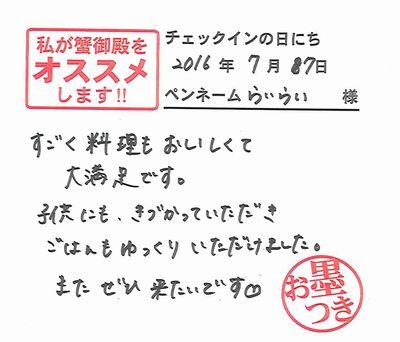 私が蟹御殿を
オススメ
します!!
チェックインの日にち
2016年 7月 日
ペンネーム らいらい 様
すごく料理もおいしくて
大満足です。
子供にも、きづかっていただき
ごはんもゆっくりいただけました。
またぜひ来たいです♡
お墨つき